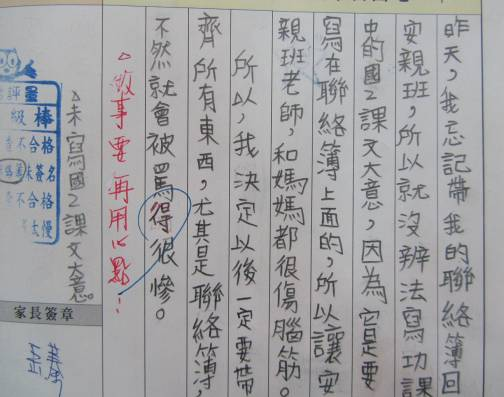 昨天，我忘記帶我的聯絡簿回
安親班，所以就沒辦法寫功課
中的國乙課文大意，因為它是要
寫在聯絡簿上面的，所以讓安
親班老師，和媽媽都很傷腦筋。
所以，我決定以後一定要帶
齊所有東西，尤其是聯絡簿，
不然就會被罵得很慘。
△做事要再用心點！
△未寫國乙課文大意。
評量
級棒
不合格
未簽名
不合格
太慢
家長簽章